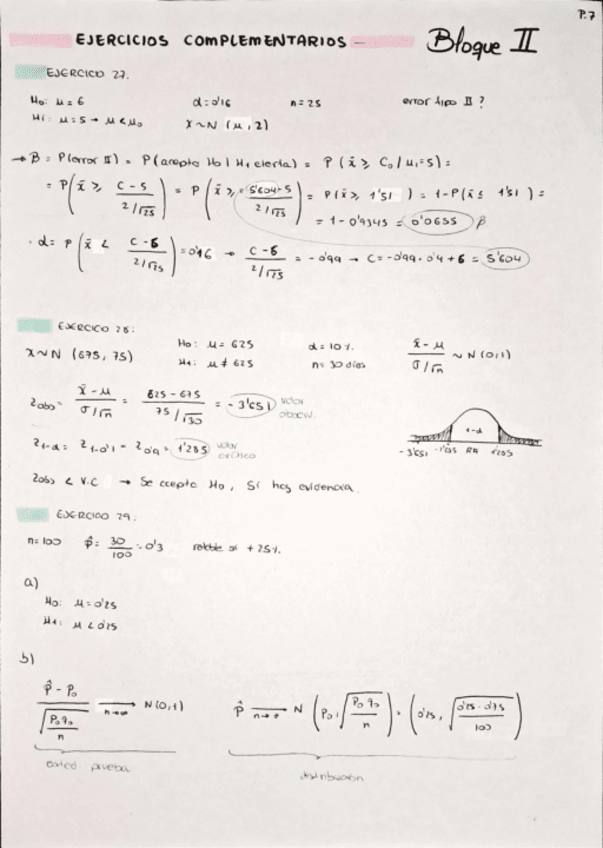 P.7
EJERCICIOS COMPLEMENTARIOS – Bloque II
EJERCICIO 27.
H₀: μ = 6 α = 0'16 n = 25 error tipo II ?
H₁: μ = 5 → μ < μ₀ X ~ N (μ, 2)
→ B = P(error II) = P(acepto H₀ | H₁ cierta) = P (x̄ ≥ C₀ / μ₁ = 5) =
= P (x̄ ≥ C - 5 / 2/√25) = P (x̄ ≥ 5'604 - 5 / 2/√25) = P(x̄ ≥ 1'51) = 1 - P(x̄ ≤ 1'51) =
= 1 - 0'9345 = 0'0655 β
· α = P (x̄ < C - 6 / 2/√25) = 0'16 → C - 6 / 2/√25 = - 0'99 → C = - 0'99 · 0'4 + 6 = 5'604
EJERCICO 28:
X ~ N (675, 75) H₀: μ = 625 α = 10 %. x̄ - μ / σ/√n ~ N (0,1)
H₁: μ ≠ 625 n = 30 días
Zobs = x̄ - μ / σ/√n = 625 - 675 / 75/√30 = - 3'651 valor observ.
Z1-α = Z1-0'1 = Z0'9 = 1'285 valor crítico
1-α
- 3'651 RA 1'285
Zobs < V.C → Se acepta H₀, Sí hay evidencia.
EJERCICIO 29:
n = 100 p̂ = 30/100 = 0'3 + 25%.
a)
H₀: μ = 0'25
H₁: μ < 0'25
b)
p̂ - p₀ / √p₀q₀/n → n→∞ N (0,1) p̂ → N (p₀, √p₀q₀/n) = (0'25, √0'25 · 0'75/100)
prueba distribución